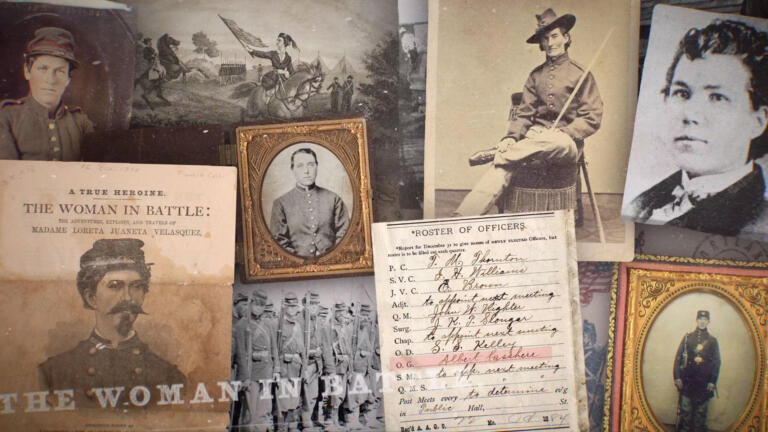 A TRUE HEROINE.
THE WOMAN IN BATTLE:
THE ADVENTURES, EXPLOITS, AND TRAVELS OF
MADAME LORETA JUANETA VELASQUEZ,
THE WOMAN IN BATTLE
*ROSTER OF OFFICERS.
*Report for December 31 to give names of NEWLY ELECTED Officers, but
roster is to be filled out each quarter.
P. C. T. M. Thornton
S. V. C. J. H. Williams
J. V. C. E. Brown
Adjt. to appoint next meeting
Q. M. John W.
Surg. J. K. P.
Chap. to appoint next meeting
O. D. S. S. Kelley
O. G. Albert Cashere
S. M. to next meeting
Q. M. S.
Post Meets every to determine
in Public Hall, St.